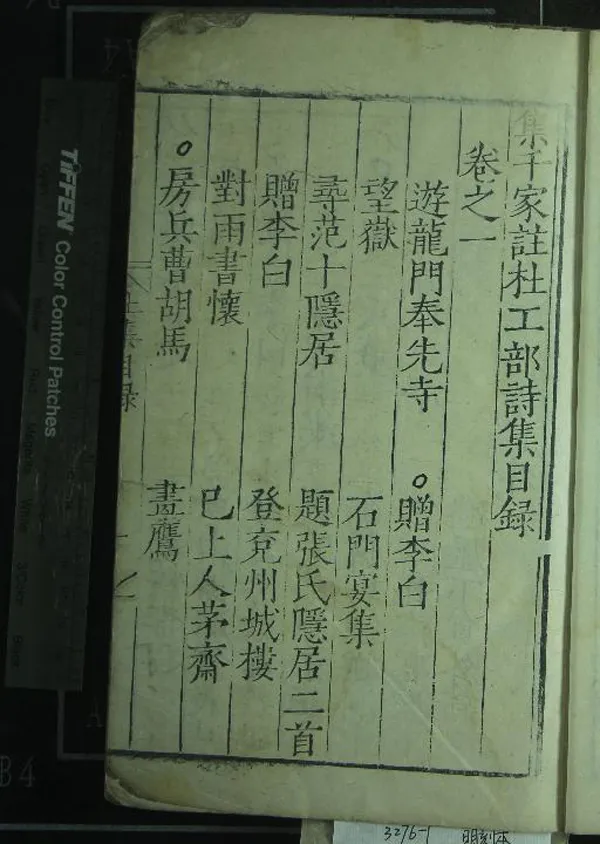 集千家註杜工部詩集目録
卷之一
遊龍門奉先寺 ○贈李白
望嶽 石門宴集
尋范十隱居 題張氏隱居二首
贈李白 登兗州城樓
對雨書懷 巳上人茅齋
○房兵曹胡馬 畫鷹
杜集目録
TIFFEN Color Control Patches
3276-1 明刻本
B4